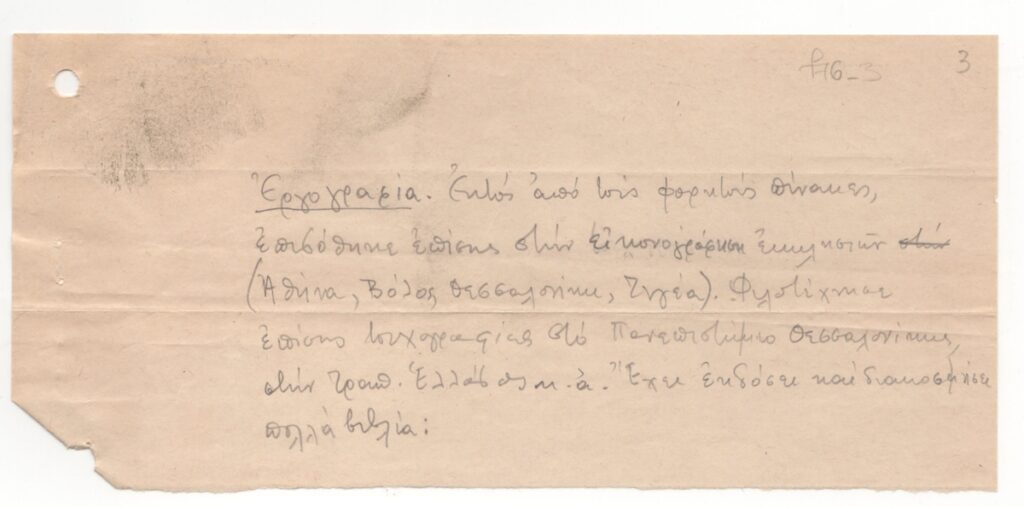 ft6-3 3
Ἐργογραφία. Ἐκτός ἀπό τούς φορητούς πίνακες,
ἐπιδόθηκε ἐπίσης στήν εἰκονογράφηση ἐκκλησιῶν στήν
(Ἀθήνα, Βόλος Θεσσαλονίκη, Τεγέα). Φιλοτέχνησε
ἐπίσης τοιχογραφίες στό Πανεπιστήμιο Θεσσαλονίκης,
στήν Τραπ. Ἑλλάδος κ.ἄ. Ἔχει ἐκδόσει καί διακοσμήσει
πολλά βιβλία: